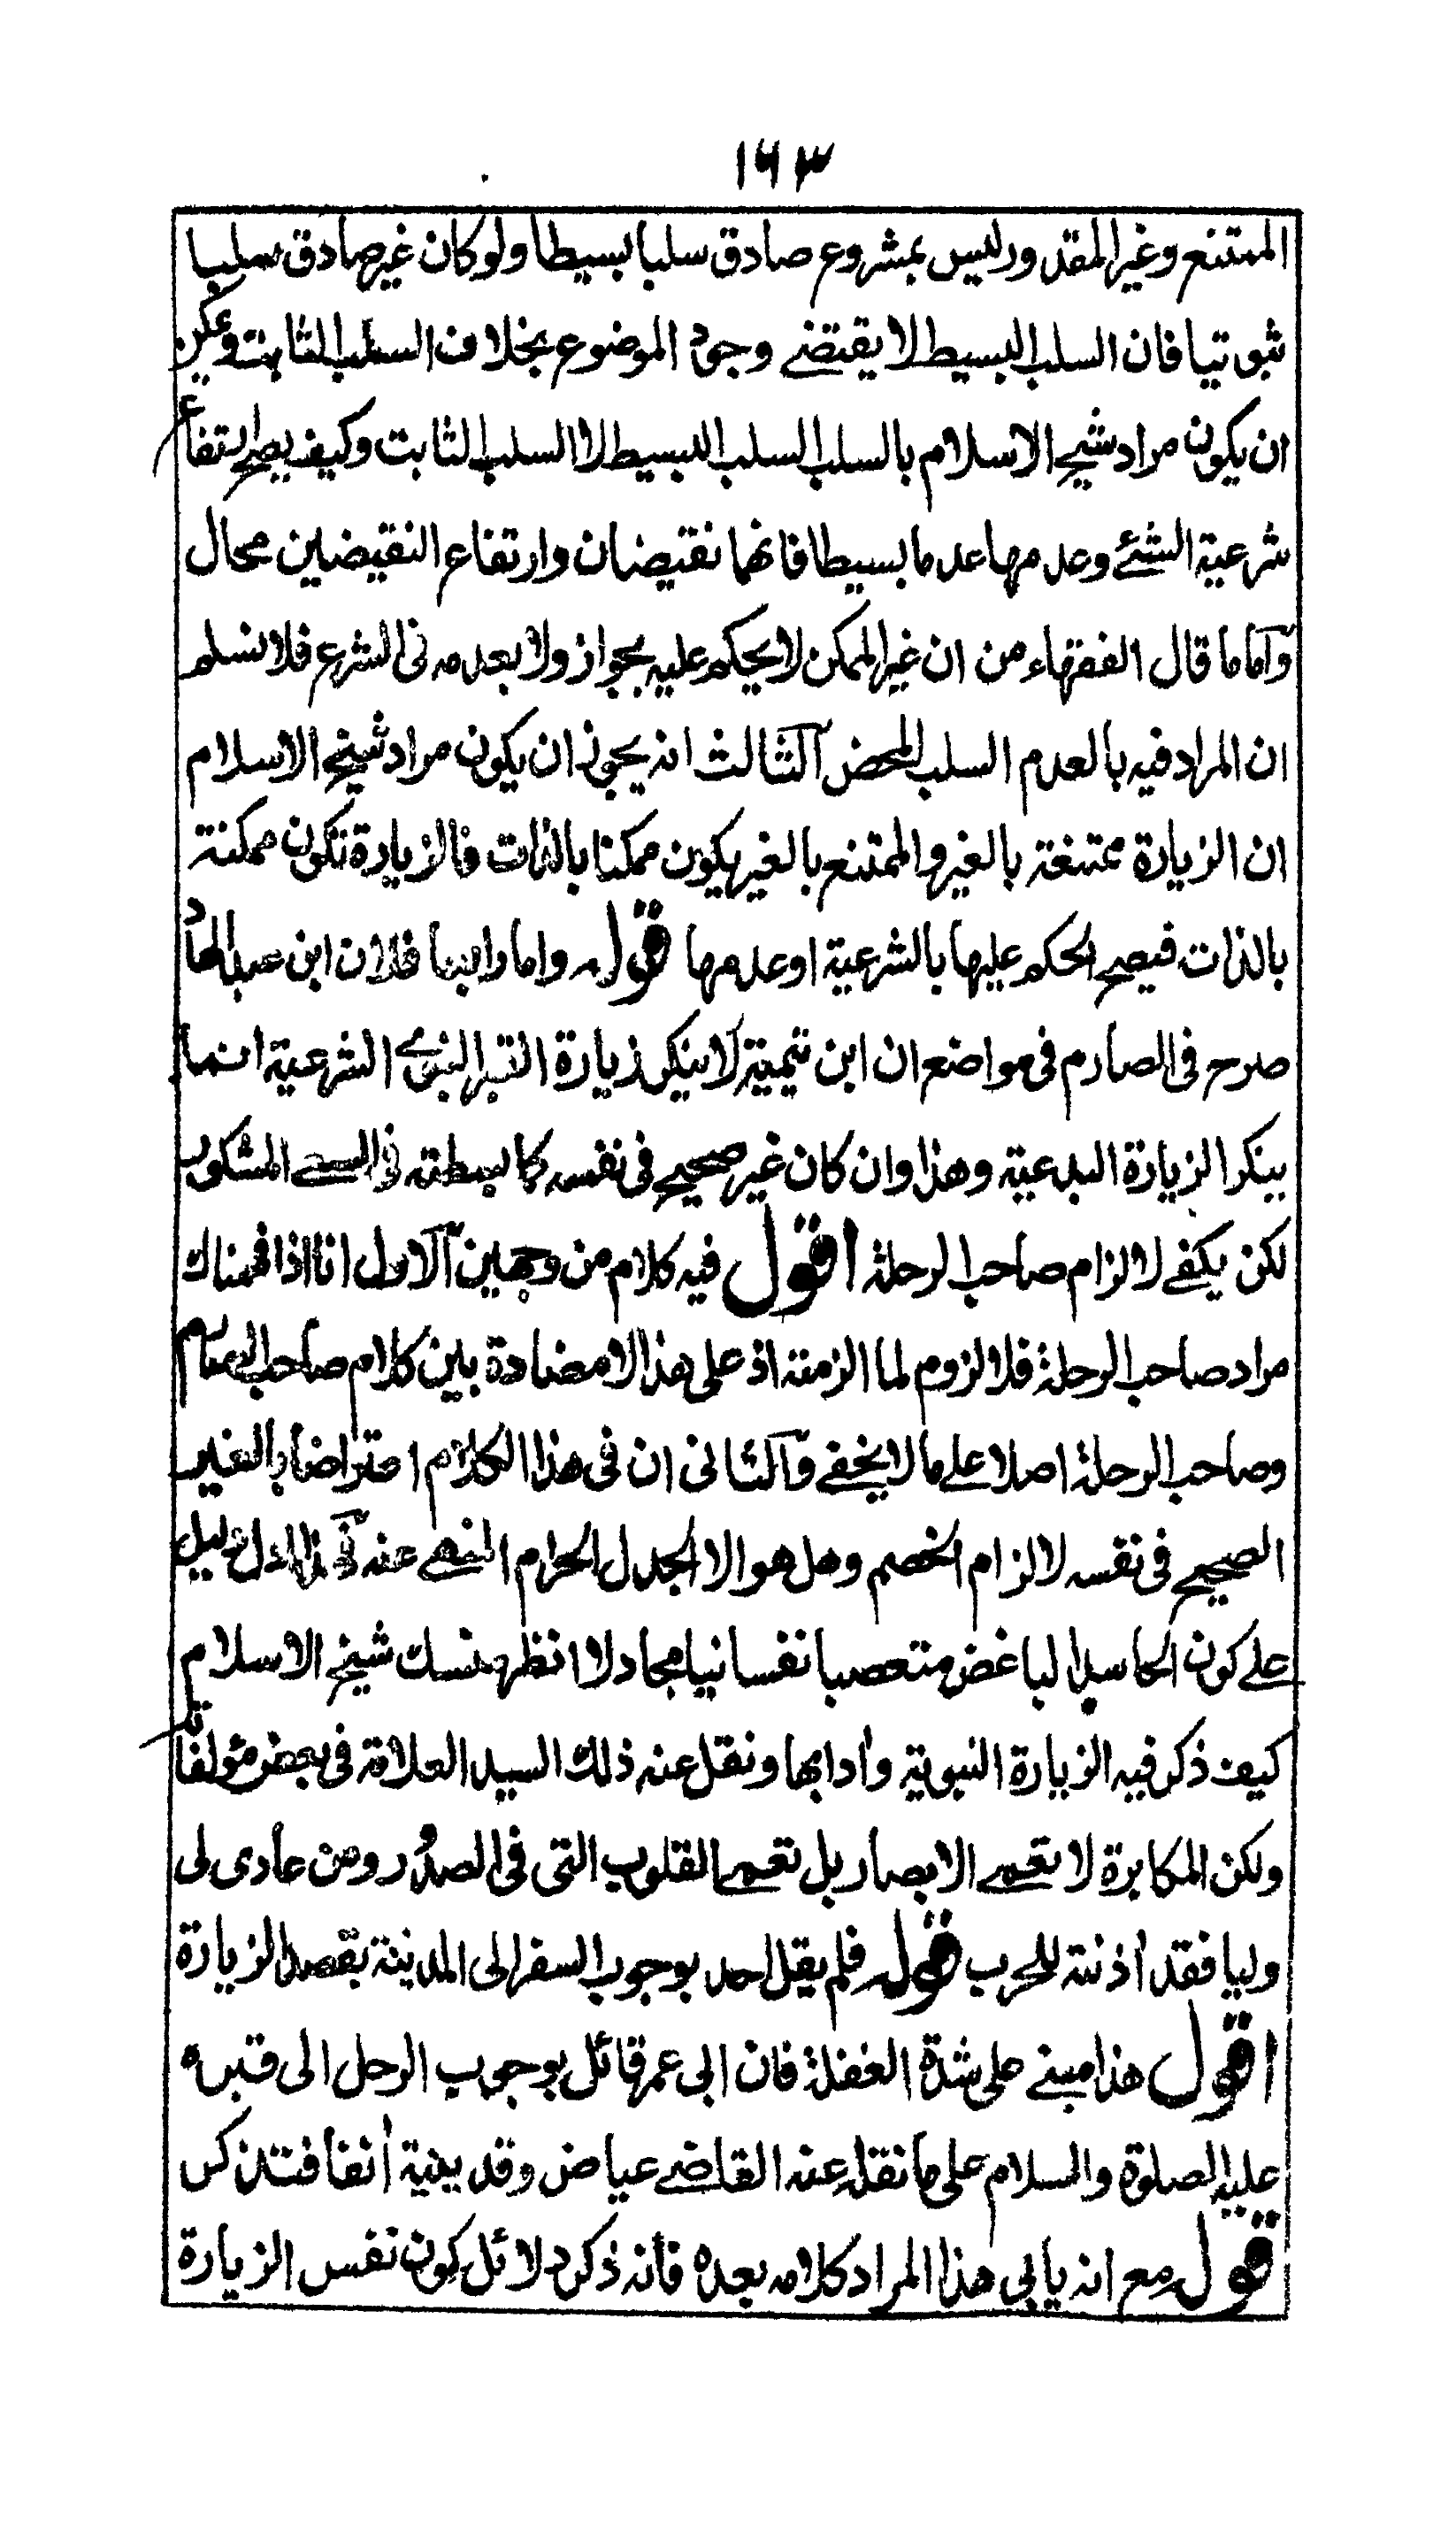 ١٦٣
الممتنع وغير المقدور ليس بمشروع صادق سلبا بسيطا ولو كان غير صادق سلبا
ثبوتيا فان السلب البسيط لا يقتضے وجود الموضوع بخلاف السلب الثابت ويمكن
ان يكون مراد شيخ الاسلام بالسلب السلب البسيط لا السلب الثابت وكيف يصح ارتفاع
شرعية الشئے وعدمها عدما بسيطا فانهما نقيضان وارتفاع النقيضين محال
وآما ما قال الفقهاء من ان غير الممكن لا يحكم عليه بجواز ولا بعدمه فى الشرع فلا نسلم
ان المراد فيه بالعدم السلب المحض آلثالث انه يجوز ان يكون مراد شيخ الاسلام
ان الزيارة ممتنعة بالغير والممتنع بالغير يكون ممكنا بالذات فالزيارة تكون ممكنة
بالذات فيصح الحكم عليها بالشرعية او عدمها قوله واما رابعا فلان ابن عبد الهاد
صرح فى الصارم فى مواضع ان ابن تيمية لا ينكر زيارة القبر النبوے الشرعية انما
ينكر الزيارة البدعية وهذا وان كان غير صحيح فى نفسه كما بسطته فى السعے المشكور
لكن يكفے لالزام صاحب الرحلة اقول فيه كلام من وجهين آلاول انا اذا فهمناك
مراد صاحب الرحلة فلا لزوم لما الزمته اذ على هذا لا مضادة بين كلام صاحب الصارم
وصاحب الرحلة اصلا علے ما لا يخفے وآلثانى ان فى هذا الكلام اعتراضا بالغير
الصحيح فى نفسه لالزام الخصم وهل هو الا الجدل الحرام المنهے عنه دليل
علے كون الحاسد الباغض متعصبا نفسانيا مجادلا انظر منسك شيخ الاسلام
كيف ذكر فيه الزيارة النبوية وآدابها ونقل عنه ذلك السيد العلامة فى بعض مؤلفاته
ولكن المكابرة لا تعمے الابصار بل تعمے القلوب التى فى الصدور ومن عادى لى
وليا فقد آذنته للحرب قوله فلم يقل احد بوجوب السفر الى المدينة بقصد الزيارة
اقول هذا مبنے على شدة الغفلة فان ابى عمر قائل بوجوب الرحل الى قبره
عليه الصلوة والسلام على ما نقله عنه القاضے عياض وقد بينته آنفا فتذكر
قوله مع انه يابى هذا المراد كلامه بعده فانه ذكر دلائل كون نفس الزيارة